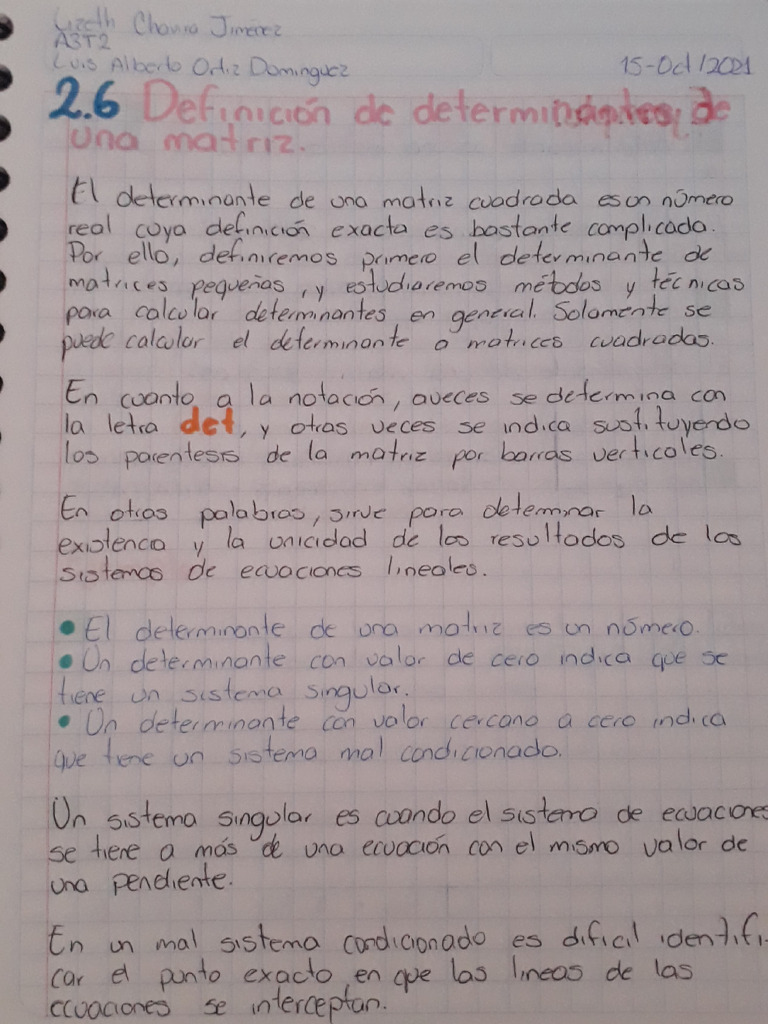 Lizeth Chavira Jiménez
A3T2
Luis Alberto Ortiz Dominguez
15-Oct/2021
2.6 Definición de determinantes de
una matriz.
El determinante de una matriz cuadrada es un número
real cuya definición exacta es bastante complicada.
Por ello, definiremos primero el determinante de
matrices pequeñas, y estudiaremos métodos y técnicas
para calcular determinantes en general. Solamente se
puede calcular el determinante a matrices cuadradas.
En cuanto a la notación, aveces se determina con
la letra det, y otras veces se indica sustituyendo
los parentesis de la matriz por barras verticales.
En otras palabras, sirve para determinar la
existencia y la unicidad de los resultados de los
sistemas de ecuaciones lineales.
• El determinante de una matriz es un número.
• Un determinante con valor de cero indica que se
tiene un sistema singular.
• Un determinante con valor cercano a cero indica
que tiene un sistema mal condicionado.
Un sistema singular es cuando el sistema de ecuaciones
se tiene a más de una ecuación con el mismo valor de
una pendiente.
En un mal sistema condicionado es dificil identifi-
car el punto exacto en que las lineas de las
ecuaciones se interceptan.